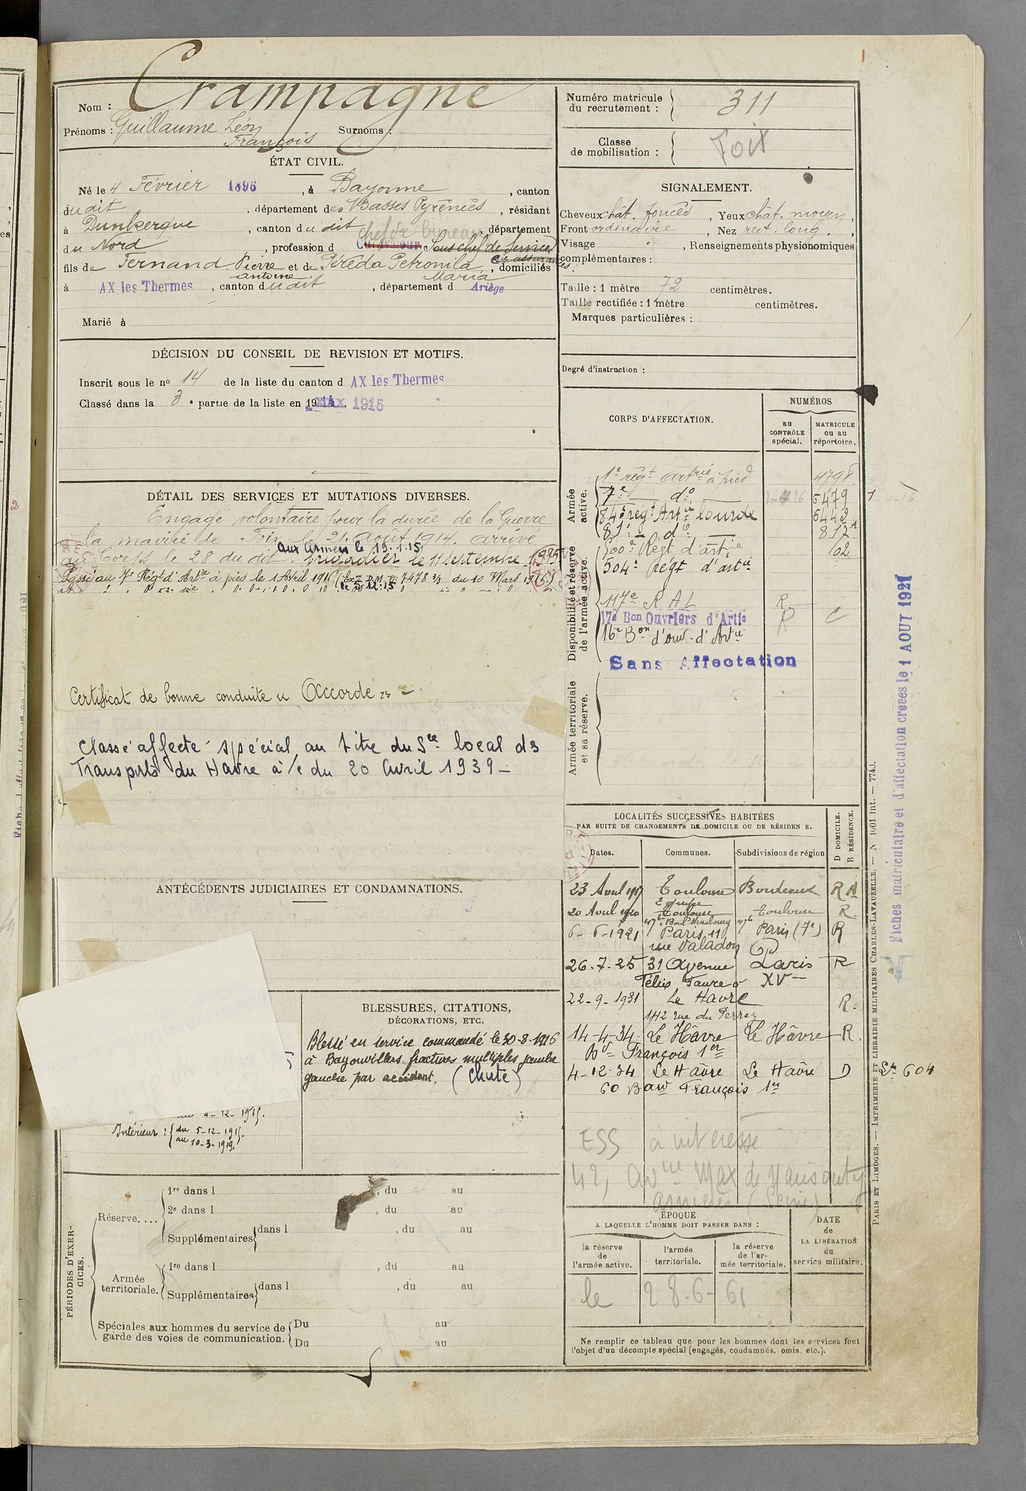 Nom : Crampagne
Prénoms : Guillaume Léon François Surnoms :
ÉTAT CIVIL.
Né le 4 Février 1896, à Bayonne, canton
dudit, département des Basses Pyrénées, résidant
à Dunkerque, canton du dit, département
du Nord, profession d Sous chef de Service
fils de Fernand Pierre Antoine et de Péréda Petronila Maria, domiciliés
à AX les Thermes, canton dudit, département d Ariège
Marié à
DÉCISION DU CONSEIL DE REVISION ET MOTIFS.
Inscrit sous le no 14 de la liste du canton d AX les Thermes
Classé dans la 3e partie de la liste en 19 1915
DÉTAIL DES SERVICES ET MUTATIONS DIVERSES.
Engagé volontaire pour la durée de la Guerre
la mairie de Foix le 21 août 1914. arrivé
au Corps le 28 du dit. Brigadier le 11 septembre 1915
aux Armées le 19.1.15
Passé au 7e Régt d'Artie à pied le 1 Avril 1916 du 10 Mars
le 5.12.15
Certificat de bonne conduite "Accordé"
Classé affecté spécial au titre du Sce local des
Transports du Havre à/c du 20 Avril 1939 –
ANTÉCÉDENTS JUDICIAIRES ET CONDAMNATIONS.
BLESSURES, CITATIONS,
DÉCORATIONS, ETC.
Blessé en service commandé le 30-8-1916
à Bayonvillers fractures multiples jambe
gauche par accident. (chute)
au 4-12-1915.
Intérieur : { du 5-12-1915.
au 10-3-1919.
PÉRIODES D'EXERCICES.
Réserve.... 1re dans l , du au
2e dans l , du au
Supplémentaires dans l , du au
Armée territoriale. 1re dans l , du au
Supplémentaires dans l , du au
Spéciales aux hommes du service de garde des voies de communication. Du au
Du au
Numéro matricule du recrutement : 311
Classe de mobilisation : Foix
SIGNALEMENT.
Cheveux chât. foncés, Yeux chât. moyen,
Front ordinaire, Nez rect. long.,
Visage , Renseignements physionomiques
complémentaires :
Taille : 1 mètre 72 centimètres.
Taille rectifiée : 1 mètre centimètres.
Marques particulières :
Degré d'instruction :
CORPS D'AFFECTATION.
NUMÉROS
au CONTRÔLE spécial.
MATRICULE ou au répertoire.
Armée active.
1er régt artrie à pied 4798
7e do 5479
84e régt Artie lourde 6448
do
500e Régt d'artie
504e Régt d'artie
Disponibilité et réserve de l'armée active.
117e R A L R
17e Bon Ouvriers d'Artie
16e Bon d'ouv. d'Artie
Sans Affectation
Armée territoriale et sa réserve.
LOCALITÉS SUCCESSIVES HABITÉES
PAR SUITE DE CHANGEMENTS DE DOMICILE OU DE RÉSIDENCE.
Dates. Communes. Subdivisions de région D DOMICILE. R RÉSIDENCE.
23 Avril 1917 Toulouse Bordeaux R A
20 Avril 1920 Toulouse Toulouse R
6-6-1921 Paris Paris (7e) R
rue Valadon
26-7-25 31 Avenue Paris R
Félix Faure XV
22-9-1931 Le Havre R.
142 rue du Perrey
14-4-34 Le Hâvre Le Hâvre R.
Bd François 1er
4-12-34 Le Havre Le Havre D
60 Bard François 1er
604
ESS à intéressé
42, Avenue Max de
Asnières (Seine)
ÉPOQUE
A LAQUELLE L'HOMME DOIT PASSER DANS :
la réserve de l'armée active.
l'armée territoriale.
la réserve de l'armée territoriale.
DATE de LA LIBÉRATION du service militaire.
le 28-6-61
Ne remplir ce tableau que pour les hommes dont les services font
l'objet d'un décompte spécial (engagés, condamnés, omis, etc.).
Fiches matriculaire et d'affectation créées le 1 AOUT 1921
PARIS ET LIMOGES. — IMPRIMERIE ET LIBRAIRIE MILITAIRES CHARLES-LAVAUZELLE. — N 1001 int. — 7740.